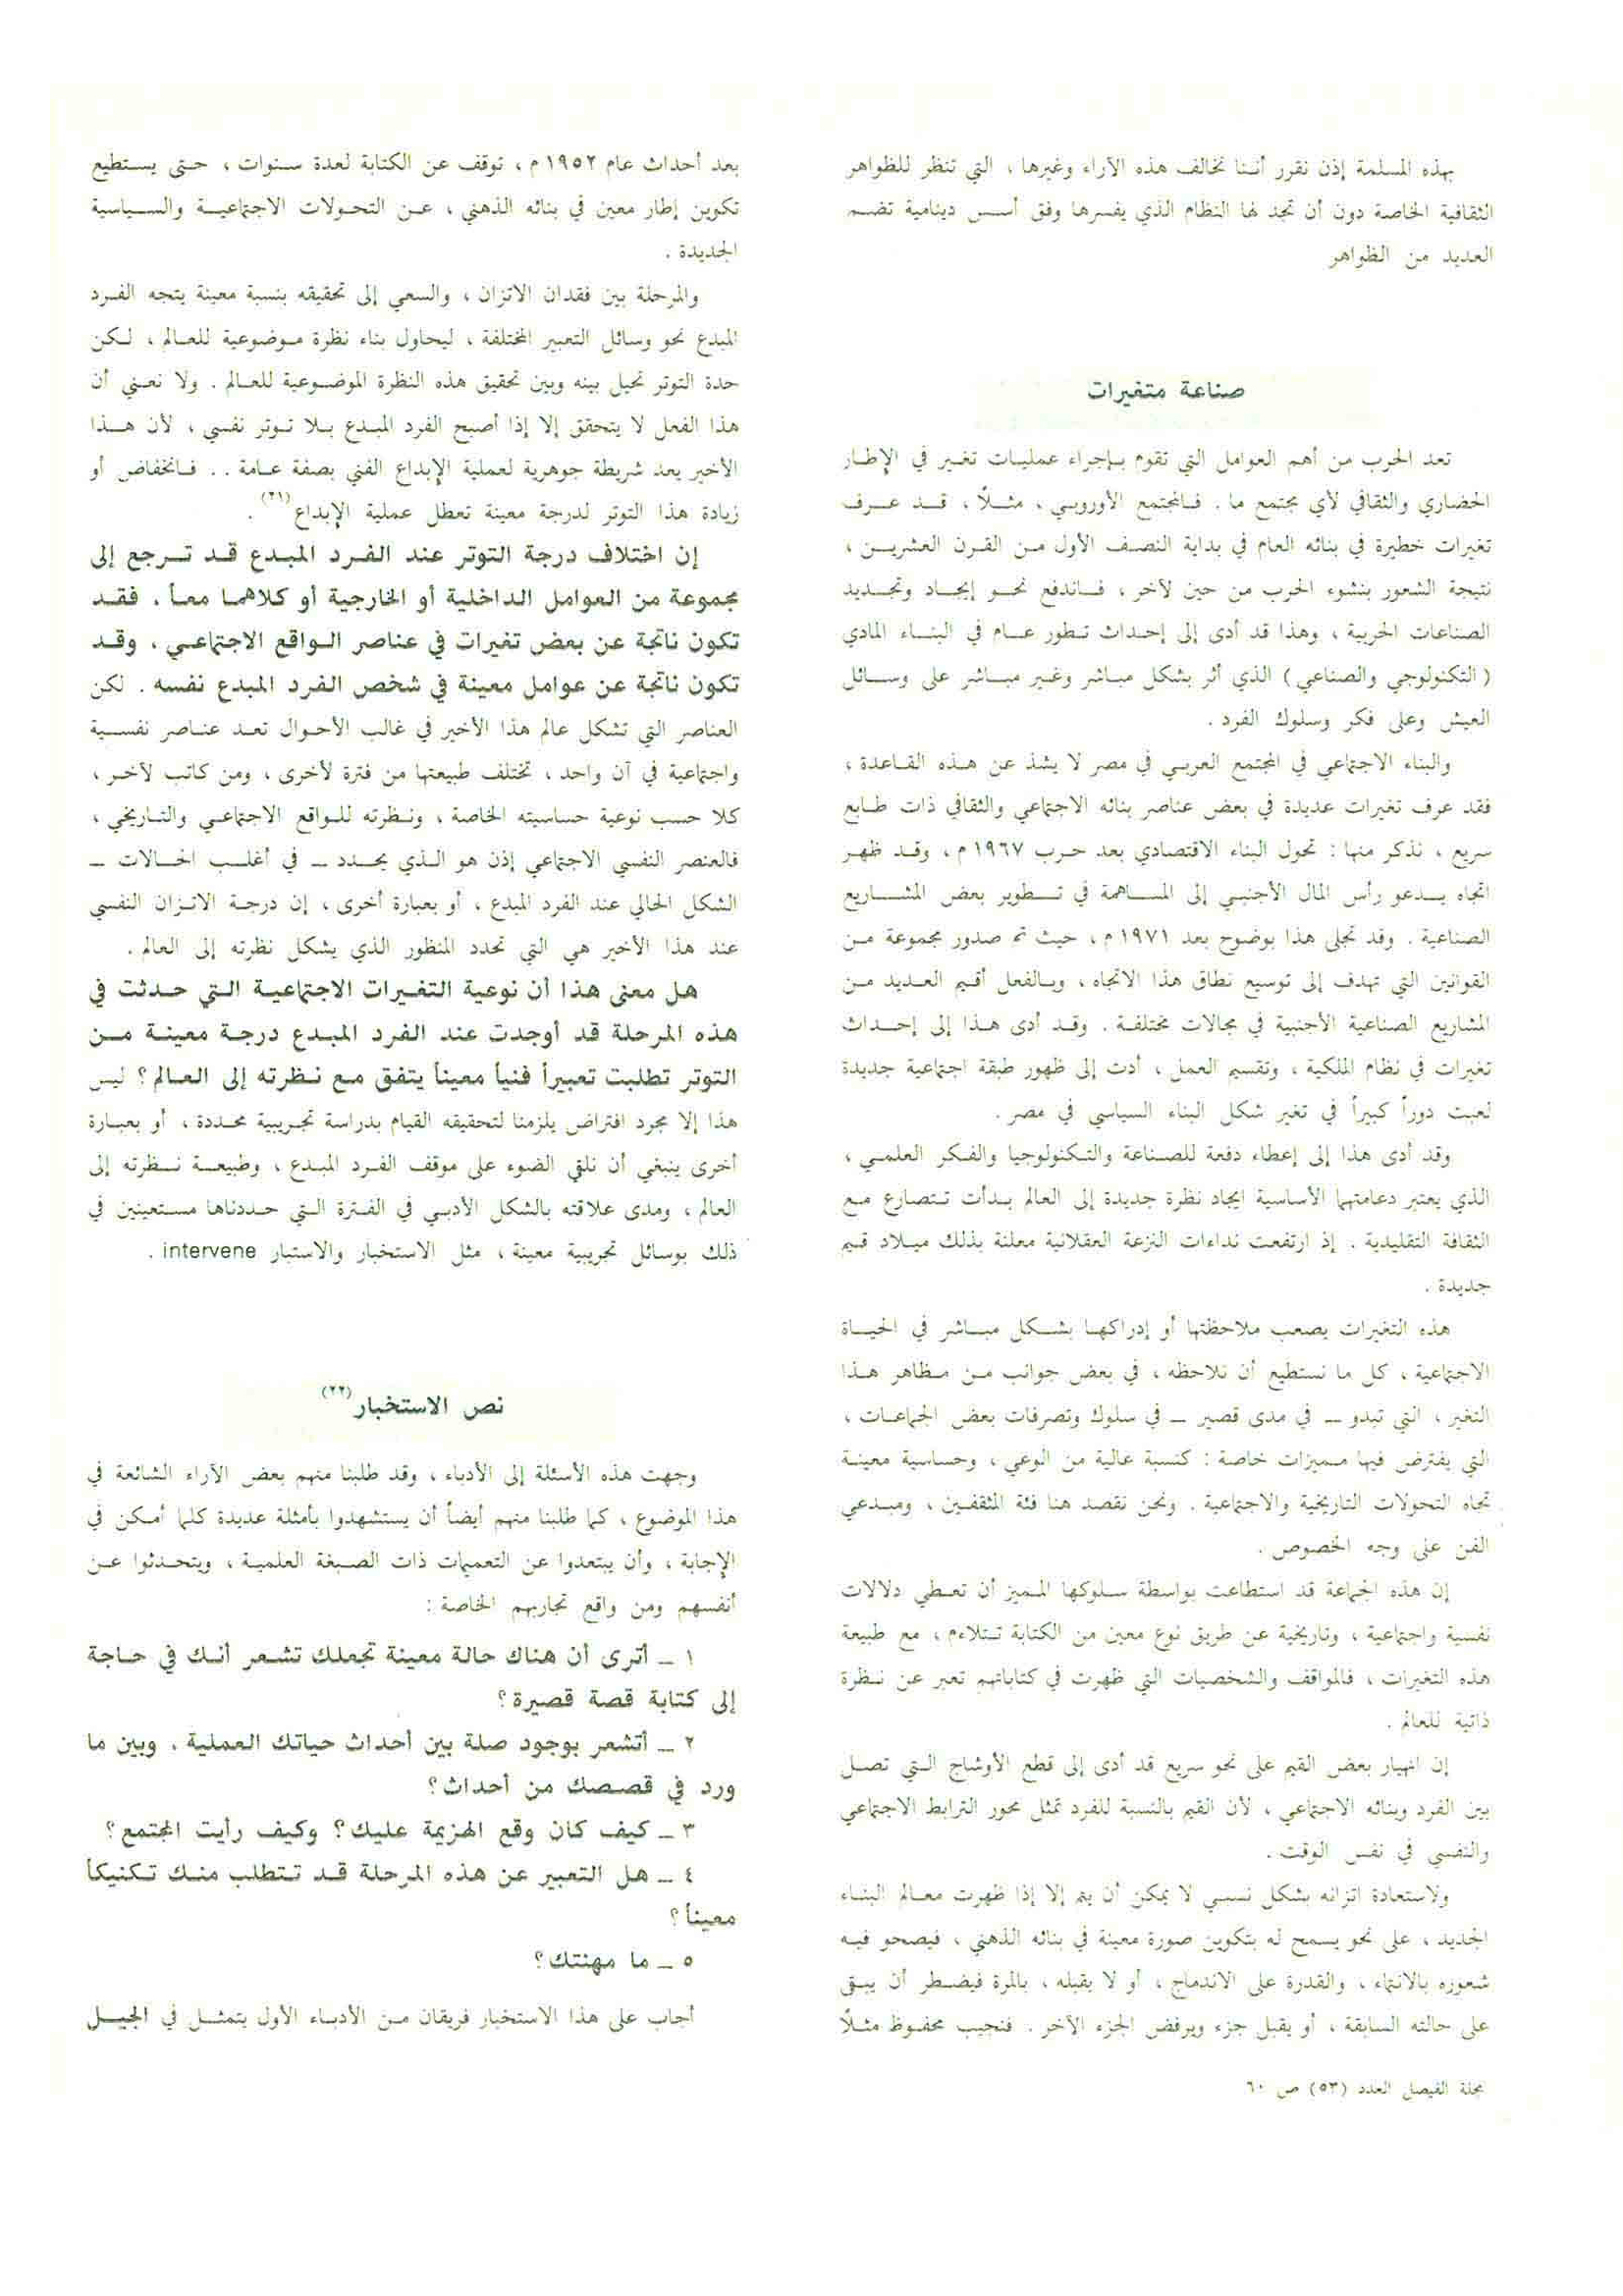 بهذه المسلمة إذن نقرر أننا نخالف هذه الآراء وغيرها ، التي تنظر للظواهر
الثقافية الخاصة دون أن تجد لها النظام الذي يفسرها وفق أسس دينامية تضم
العديد من الظواهر
صناعة متغيرات
تعد الحرب من أهم العوامل التي تقوم بإجراء عمليات تغير في الإطار
الحضاري والثقافي لأي مجتمع ما . فالمجتمع الأوروبي ، مثلاً ، قد عرف
تغيرات خطيرة في بنائه العام في بداية النصف الأول من القرن العشرين ،
نتيجة الشعور بنشوء الحرب من حين لآخر ، فاندفع نحو إيجاد وتجديد
الصناعات الحربية ، وهذا قد أدى إلى إحداث تطور عام في البناء المادي
( التكنولوجي والصناعي ) الذي أثر بشكل مباشر وغير مباشر على وسائل
العيش وعلى فكر وسلوك الفرد .
والبناء الاجتماعي في المجتمع العربي في مصر لا يشذ عن هذه القاعدة ،
فقد عرف تغيرات عديدة في بعض عناصر بنائه الاجتماعي والثقافي ذات طابع
سريع ، نذكر منها : تحول البناء الاقتصادي بعد حرب ١٩٦٧ م ، وقد ظهر
اتجاه يدعو رأس المال الأجنبي إلى المساهمة في تطوير بعض المشاريع
الصناعية . وقد تجلى هذا بوضوح بعد ١٩٧١ م ، حيث تم صدور مجموعة من
القوانين التي تهدف إلى توسيع نطاق هذا الاتجاه ، وبالفعل أقيم العديد من
المشاريع الصناعية الأجنبية في مجالات مختلفة . وقد أدى هذا إلى إحداث
تغيرات في نظام الملكية ، وتقسيم العمل ، أدت إلى ظهور طبقة اجتماعية جديدة
لعبت دوراً كبيراً في تغير شكل البناء السياسي في مصر .
وقد أدى هذا إلى إعطاء دفعة للصناعة والتكنولوجيا والفكر العلمي ،
الذي يعتبر دعامتهما الأساسية ايجاد نظرة جديدة إلى العالم بدأت تتصارع مع
الثقافة التقليدية . إذ ارتفعت نداءات النزعة العقلانية معلنة بذلك ميلاد قيم
جديدة .
هذه التغيرات يصعب ملاحظتها أو إدراكها بشكل مباشر في الحياة
الاجتماعية ، كل ما نستطيع أن نلاحظه ، في بعض جوانب من مظاهر هذا
التغير ، التي تبدو ــ في مدى قصير ــ في سلوك وتصرفات بعض الجماعات ،
التي يفترض فيها مميزات خاصة : كنسبة عالية من الوعي ، وحساسية معينة
تجاه التحولات التاريخية والاجتماعية . ونحن نقصد هنا فئة المثقفين ، ومبدعي
الفن على وجه الخصوص .
إن هذه الجماعة قد استطاعت بواسطة سلوكها المميز أن تعطي دلالات
نفسية واجتماعية ، وتاريخية عن طريق نوع معين من الكتابة تتلاءم ، مع طبيعة
هذه التغيرات ، فالمواقف والشخصيات التي ظهرت في كتاباتهم تعبر عن نظرة
ذاتية للعالم .
إن انهيار بعض القيم على نحو سريع قد أدى إلى قطع الأوشاج التي تصل
بين الفرد وبنائه الاجتماعي ، لأن القيم بالنسبة للفرد تمثل محور الترابط الاجتماعي
والنفسي في نفس الوقت .
ولاستعادة اتزانه بشكل نسبي لا يمكن أن يتم إلا إذا ظهرت معالم البناء
الجديد ، على نحو يسمح له بتكوين صورة معينة في بنائه الذهني ، فيصحو فيه
شعوره بالانتماء ، والقدرة على الاندماج ، أو لا يقبله ، بالمرة فيضطر أن يبقى
على حالته السابقة ، أو يقبل جزء ويرفض الجزء الآخر . فنجيب محفوظ مثلاً
مجلة الفيصل العدد (٥٣) ص ٦٠
بعد أحداث عام ١٩٥٢ م ، توقف عن الكتابة لعدة سنوات ، حتى يستطيع
تكوين إطار معين في بنائه الذهني ، عن التحولات الاجتماعية والسياسية
الجديدة .
والمرحلة بين فقدان الاتزان ، والسعي إلى تحقيقه بنسبة معينة يتجه الفرد
المبدع نحو وسائل التعبير المختلفة ، ليحاول بناء نظرة موضوعية للعالم ، لكن
حدة التوتر تحيل بينه وبين تحقيق هذه النظرة الموضوعية للعالم . ولا نعني أن
هذا الفعل لا يتحقق إلا إذا أصبح الفرد المبدع بلا توتر نفسي ، لأن هذا
الأخير يعد شريطة جوهرية لعملية الإبداع الفني بصفة عامة . . فانخفاض أو
زيادة هذا التوتر لدرجة معينة تعطل عملية الإبداع (٢١) .
إن اختلاف درجة التوتر عند الفرد المبدع قد ترجع إلى
مجموعة من العوامل الداخلية أو الخارجية أو كلاهما معاً ، فقد
تكون ناتجة عن بعض تغيرات في عناصر الواقع الاجتماعي ، وقد
تكون ناتجة عن عوامل معينة في شخص الفرد المبدع نفسه . لكن
العناصر التي تشكل عالم هذا الأخير في غالب الأحوال تعد عناصر نفسية
واجتماعية في آن واحد ، تختلف طبيعتها من فترة لأخرى ، ومن كاتب لآخر ،
كلا حسب نوعية حساسيته الخاصة ، ونظرته للواقع الاجتماعي والتاريخي ،
فالعنصر النفسي الاجتماعي إذن هو الذي يحدد ــ في أغلب الحالات ــ
الشكل الحالي عند الفرد المبدع ، أو بعبارة أخرى ، إن درجة الاتزان النفسي
عند هذا الأخير هي التي تحدد المنظور الذي يشكل نظرته إلى العالم .
هل معنى هذا أن نوعية التغيرات الاجتماعية التي حدثت في
هذه المرحلة قد أوجدت عند الفرد المبدع درجة معينة من
التوتر تطلبت تعبيراً فنياً معيناً يتفق مع نظرته إلى العالم ؟ ليس
هذا إلا مجرد افتراض يلزمنا لتحقيقه القيام بدراسة تجريبية محددة ، أو بعبارة
أخرى ينبغي أن نلقي الضوء على موقف الفرد المبدع ، وطبيعة نظرته إلى
العالم ، ومدى علاقته بالشكل الأدبي في الفترة التي حددناها مستعينين في
ذلك بوسائل تجريبية معينة ، مثل الاستخبار والاستبار intervene .
نص الاستخبار (٢٢)
وجهت هذه الأسئلة إلى الأدباء ، وقد طلبنا منهم بعض الآراء الشائعة في
هذا الموضوع ، كما طلبنا منهم أيضاً أن يستشهدوا بأمثلة عديدة كلما أمكن في
الإجابة ، وأن يبتعدوا عن التعميمات ذات الصبغة العلمية ، ويتحدثوا عن
أنفسهم ومن واقع تجاربهم الخاصة :
١ ــ أترى أن هناك حالة معينة تجعلك تشعر أنك في حاجة
إلى كتابة قصة قصيرة ؟
٢ ــ أتشعر بوجود صلة بين أحداث حياتك العملية ، وبين ما
ورد في قصصك من أحداث ؟
٣ ــ كيف كان وقع الهزيمة عليك ؟ وكيف رأيت المجتمع ؟
٤ ــ هل التعبير عن هذه المرحلة قد تتطلب منك تكنيكاً
معيناً ؟
٥ ــ ما مهنتك ؟
أجاب على هذا الاستخبار فريقان من الأدباء الأول يتمثل في الجيل